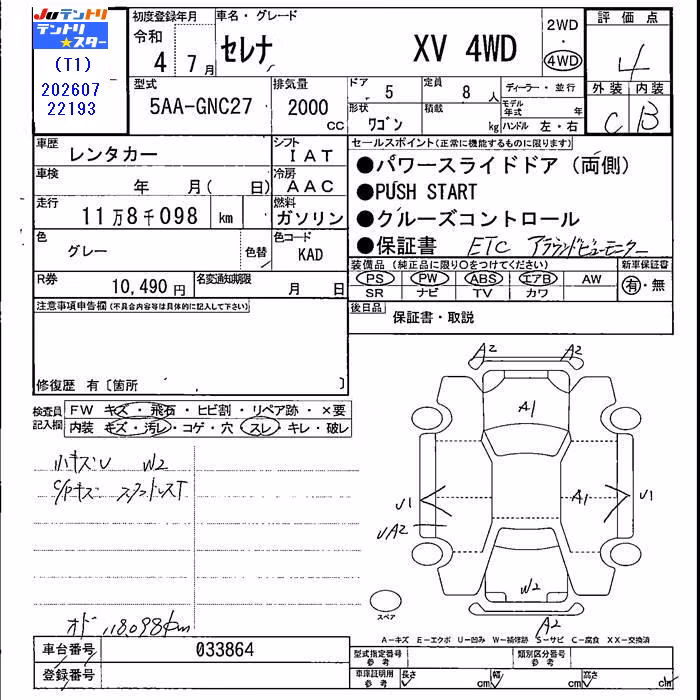 Juテントリ
テントリ
★スター
(T1)
202607
22193
初度登録年月
令和
4 7月
車名・グレード
セレナ XV 4WD
2WD
・
4WD
評価点
4
外装 内装
C B
型式
5AA-GNC27
排気量
2000
CC
ドア
5
定員
8人
形状
ワゴン
積載
kg
ディーラー・並行
モデル年式 年
ハンドル 左・右
車歴
レンタカー
シフト
IAT
車検
年 月( 日)
冷房
AAC
走行
11万8千098 km
燃料
ガソリン
色
グレー
色替
色コード
KAD
R券
10,490円
名変通知期限
月 日
セールスポイント(正常に機能するものに限ります)
●パワースライドドア(両側)
●PUSH START
●クルーズコントロール
●保証書 ETC アラウンドビューモニター
装備品(純正品に限り○をつけてください)
新車保証書
PS PW ABS エアB AW
SR ナビ TV カワ
有・無
後日品
保証書・取説
注意事項申告欄(不具合内容等は具体的に記入して下さい)
修復歴 有〔箇所 〕
検査員記入欄
FW キズ・飛石・ヒビ割・リペア跡・×要
内装 キズ・汚レ・コゲ・穴 スレ・キレ・破レ
小キズU W2
C/Pキズ
オド 118,098km
A2 A2
A1
U1
A1
U1
UA2
W2
A2
スペア
A-キズ E-エクボ U-凹み W-補修跡 S-サビ C-腐食 XX-交換済
車台番号
033864
登録番号
型式指定番号
参考
類別区分番号
参考
車庫証明用
参考
長さ
cm
幅
cm
高さ
cm